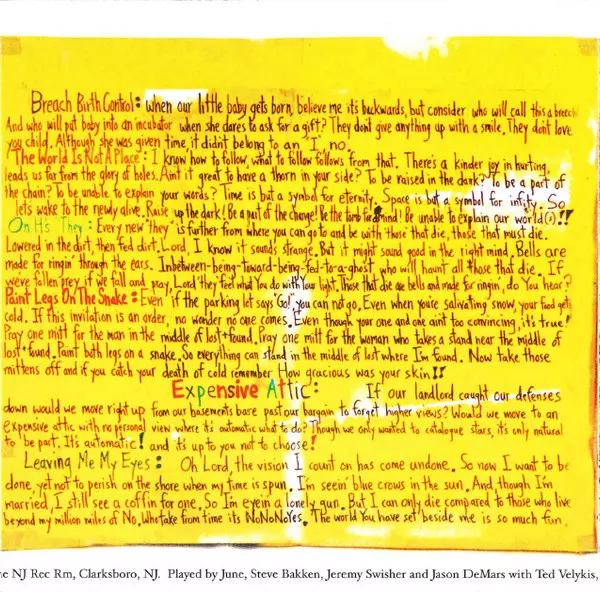 Breach Birth Control: when our little baby gets born, believe me it's backwards, but consider who will call this a breech
And who will put baby into an incubator when she dares to ask for a gift? They don't give anything up with a smile. They don't love
you child. Although she was given time it didn't belong to an "I" no.
The World Is Not A Place: I know how to follow, what to follow follows from that. There's a kinder joy in hurting,
leads us far from the glory of holes. Ain't it great to have a thorn in your side? To be raised in the dark? To be a part of
the chain? To be unable to explain your words? Time is but a symbol for eternity. Space is but a symbol for infity. So
lets wake to the newly alive. Raise up the dark! Be a part of the change! Be the tomb for mind! Be unable to explain our world(s)!!
On It's They: Every new "they" is further from where you can go to and be with those that die, those that must die.
Lowered in the dirt, then fed dirt, Lord, I know it sounds strange. But it might sound good in the right mind. Bells are
made for ringin' through the ears. Inbetween-being-toward-being-fed-to-a-ghost who will haunt all those that die. If
we've fallen prey if we fall and pray, Lord they feel what You do with Your light. Those that die are bells and made for ringin', do You hear?
Paint Legs On The Snake: Even if the parking lot says "Go!", you can not go. Even when you're salvating snow, your food gets
cold. If this invitation is an order, no wonder no one comes. Even though your one and one ain't too convincing, it's true!
Pray one mitt for the man in the middle of lost+found. Pray one mitt for the woman who takes a stand near the middle of
lost+found. Paint both legs on a snake. So everything can stand in the middle of lost where I'm found. Now take those
mittens off and if you catch your death of cold remember How gracious was your skin!!
Expensive Attic: If our landlord caught our defenses
down would we move right up from our basements bare past our bargain to forget higher views? Would we move to an
expensive attic with no personal view where it's automatic what to do? Though we only wanted to catalogue stars, it's only natural
to be part. It's automatic! and it's up to you not to choose!
Leaving Me My Eyes: Oh Lord, the vision I count on has come undone. So now I want to be
done, yet not to perish on the shore when my time is spun. I'm seein' blue crows in the sun. And though I'm
married, I still see a coffin for one. So I'm eyein a lonely gun. But I can only die compared to those who live
beyond my million miles of No. Who take from time its NoNoNoYes. The world You have set beside me is so much fun.
e NJ Rec Rm, Clarksboro, NJ. Played by June, Steve Bakken, Jeremy Swisher and Jason DeMars with Ted Velykis,